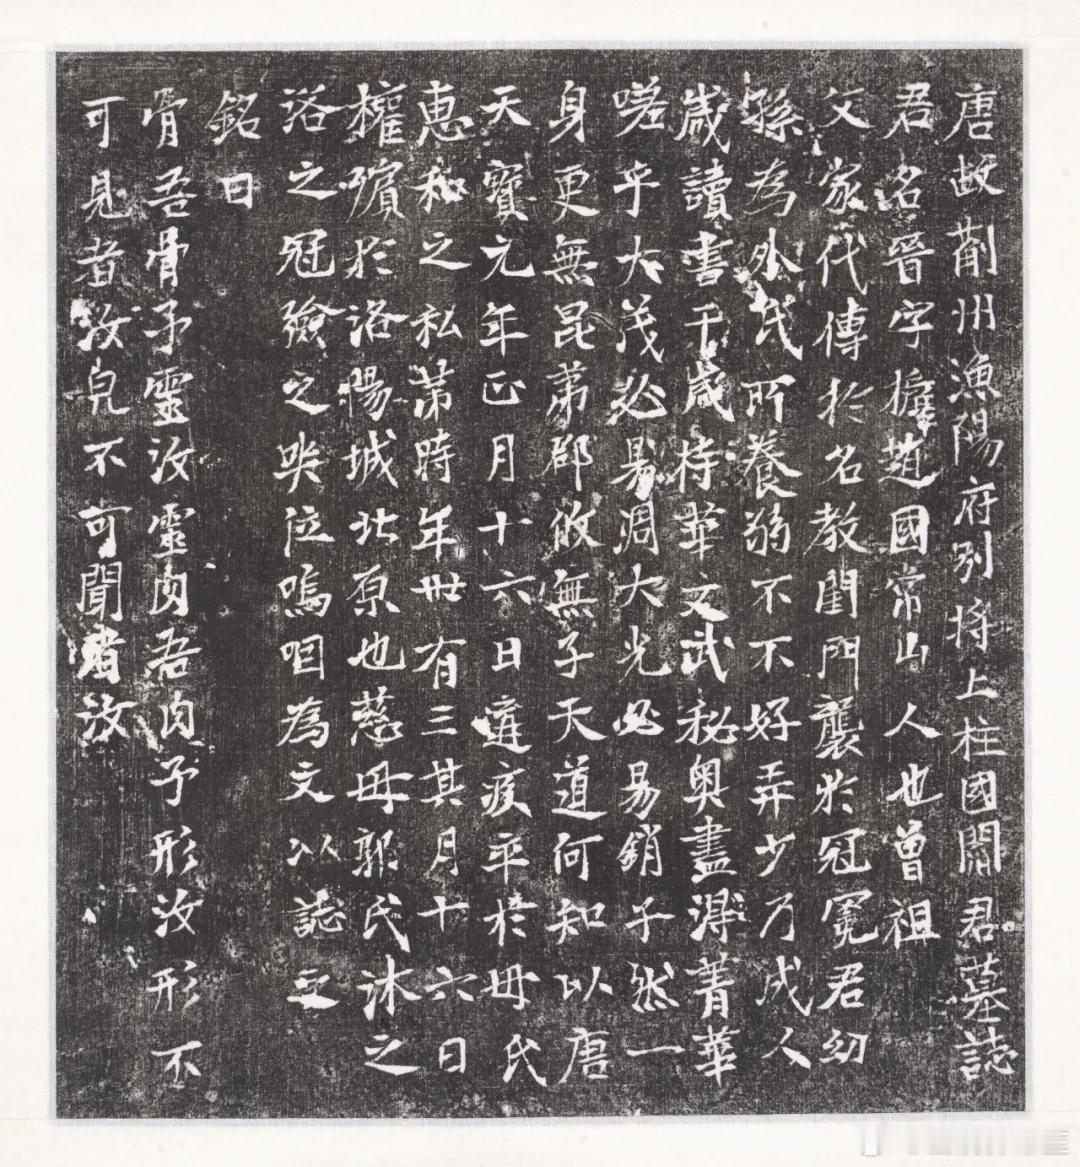 唐故薊州漁陽府別將上柱國閻君墓誌
君名晉字據趙國常山人也曾祖
父家代傳於名教閨門襲於冠冕君幼
孫為外氏所養弱不不好弄少乃成人
歲讀書千歲特華文武秘奧盡得菁華
嗟乎大茂必易凋大光必易銷孑然一
身更無昆弟鄧攸無子天道何知以唐
天寶元年正月十六日遘疾卒於毋氏
惠和之私苐時年卅有三其月十六日
權殯於洛陽城北原也慈毋郭氏沐之
浴之冠殮之哭位嗚咽為文以誌之
銘曰
骨吾骨予靈汝靈肉吾肉予形汝形不
可見者汝皃不可聞者汝